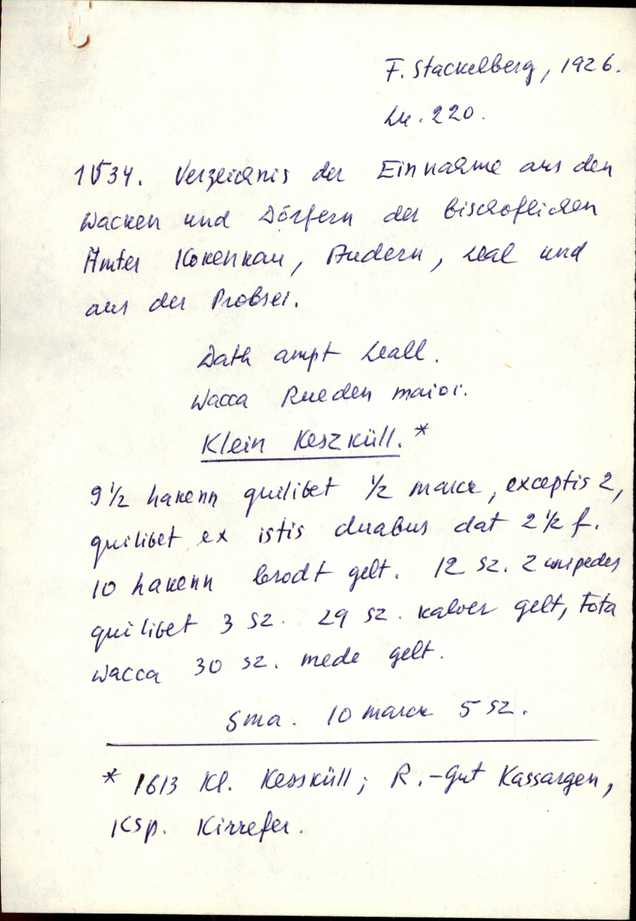 F. Stackelberg, 1926.
Lk. 220.
1534. Verzeichnis der Einnahme aus den
Wacken und Dörfern der bischoflichen
Ämter Kokenkau, Audern, Leal und
aus der Probsei.
Dath ampt Leall.
Wacca Rueden maior.
Klein Keszküll.*
9 1/2 hakenn quilibet 1/2 marck, exceptis 2,
quilibet ex istis duabus dat 2 1/2 f.
10 hakenn brodt gelt. 12 sz. 2 unipedes
quilibet 3 sz. 29 sz. kalver gelt, Tota
wacca 30 sz. mede gelt.
Sma. 10 marck 5 sz.
* 1613 Kl. Kesskùll; R.-Gut Kassargen,
Ksp. Kirrefer.